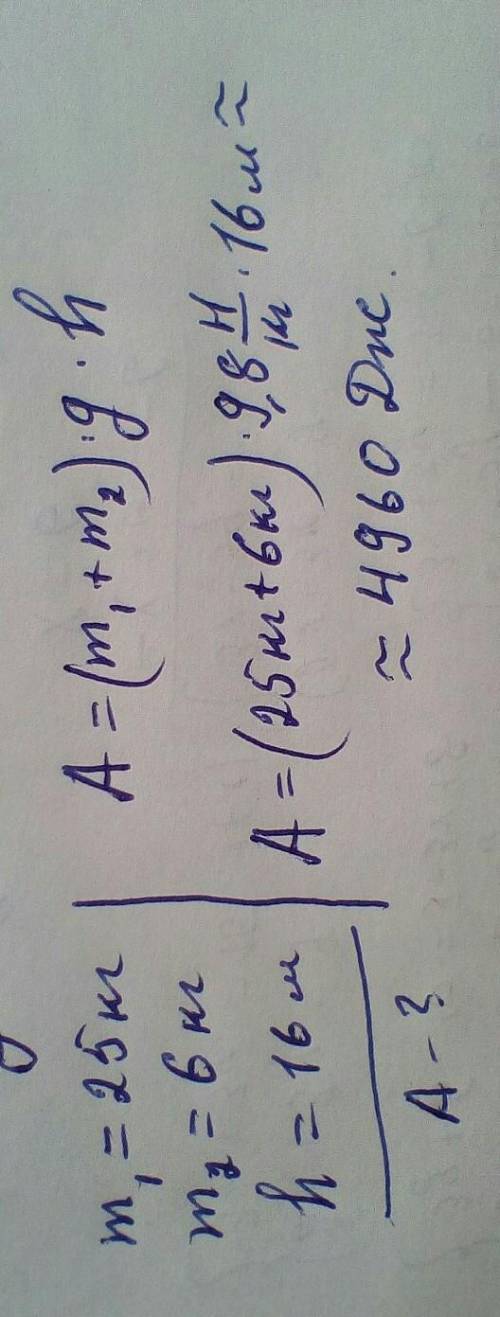 m₁ = 25 кг
m₂ = 6 кг
h = 16 м
A - ?
A = (m₁ + m₂) · g · h
A = (25 кг + 6 кг) · 9,8 Н/кг · 16 м ≈
≈ 4960 Дж.